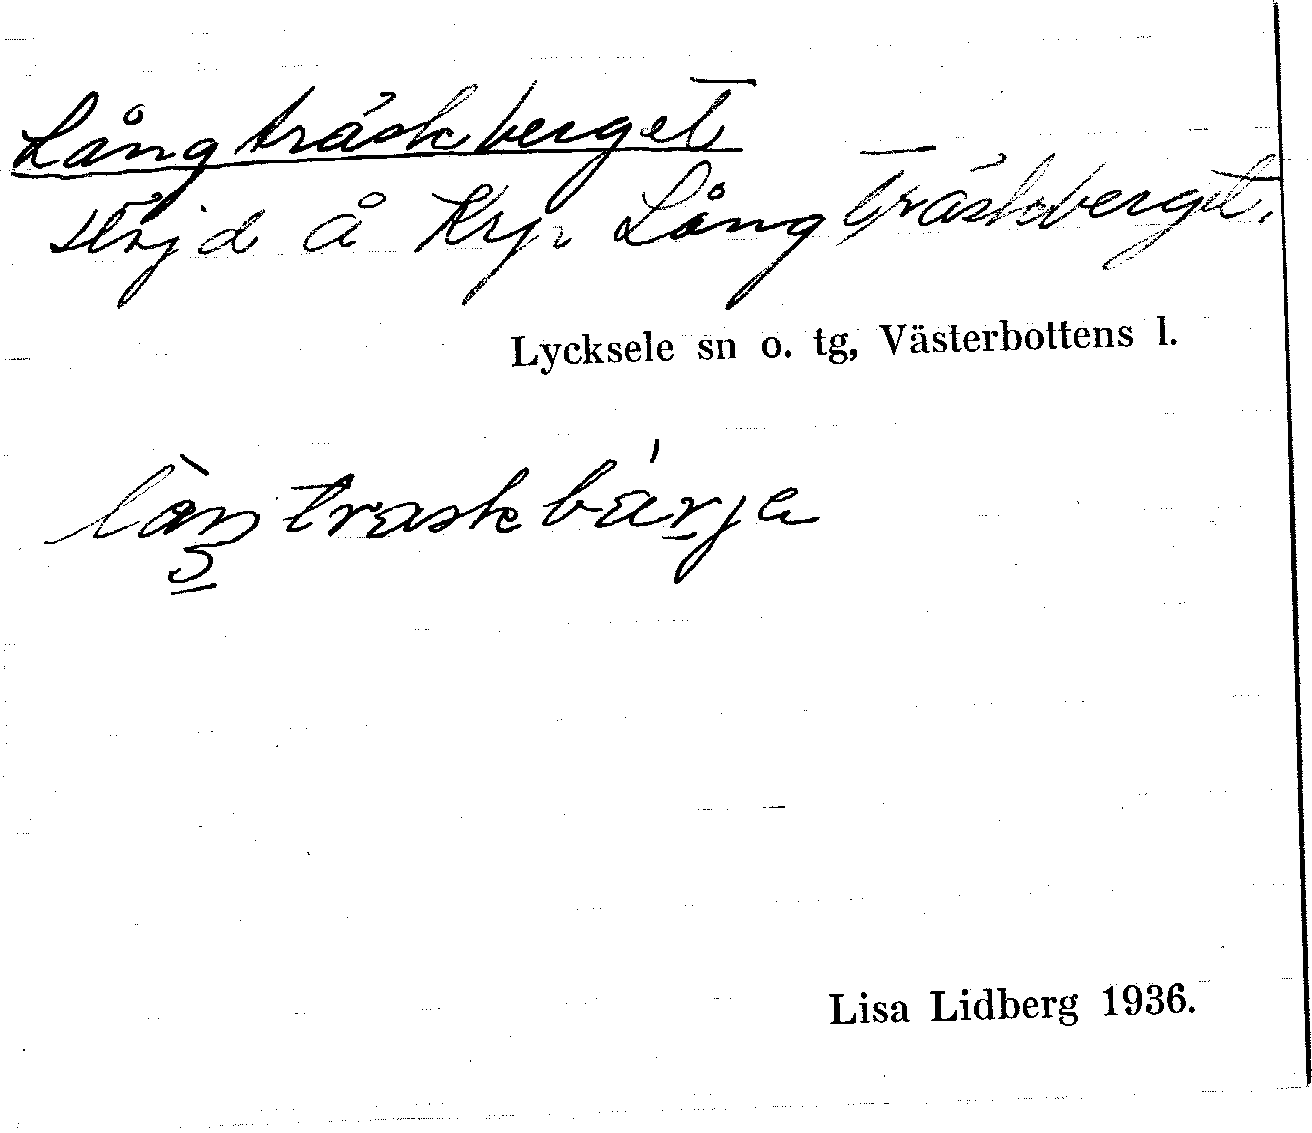 Långträskberget
Höjd å Krp. Långträskberget.
Lycksele sn o. tg, Västerbottens l.
Lisa Lidberg 1936.